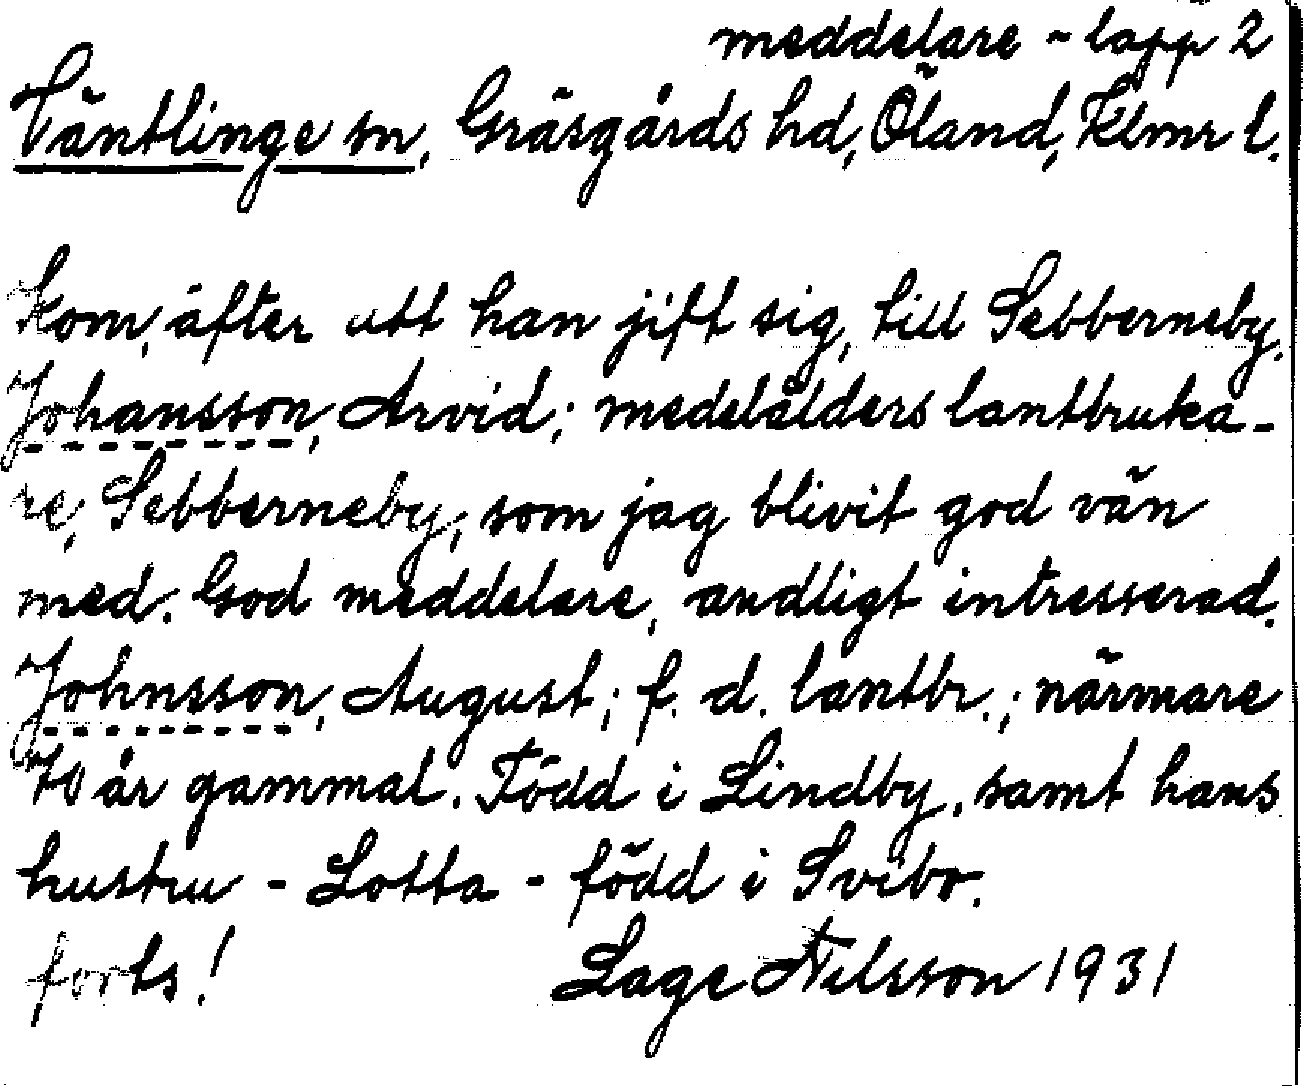 meddelare - lapp 2
Väntlinge sn, Gräsgårds hd, Öland, Klmr l.
kom, äfter att han jift sig, till Sebberneby.
Johansson, Arvid; medelålders lantbruka-
re, Sebberneby, som jag blivit god vän
med. God meddelare, andligt intresserad.
Johnsson, August; f. d. lantbr.; närmare
70 år gammal. Född i Lindby, samt hans
hustru - Lotta - född i Svibo.
forts! Lage Nilsson 1931